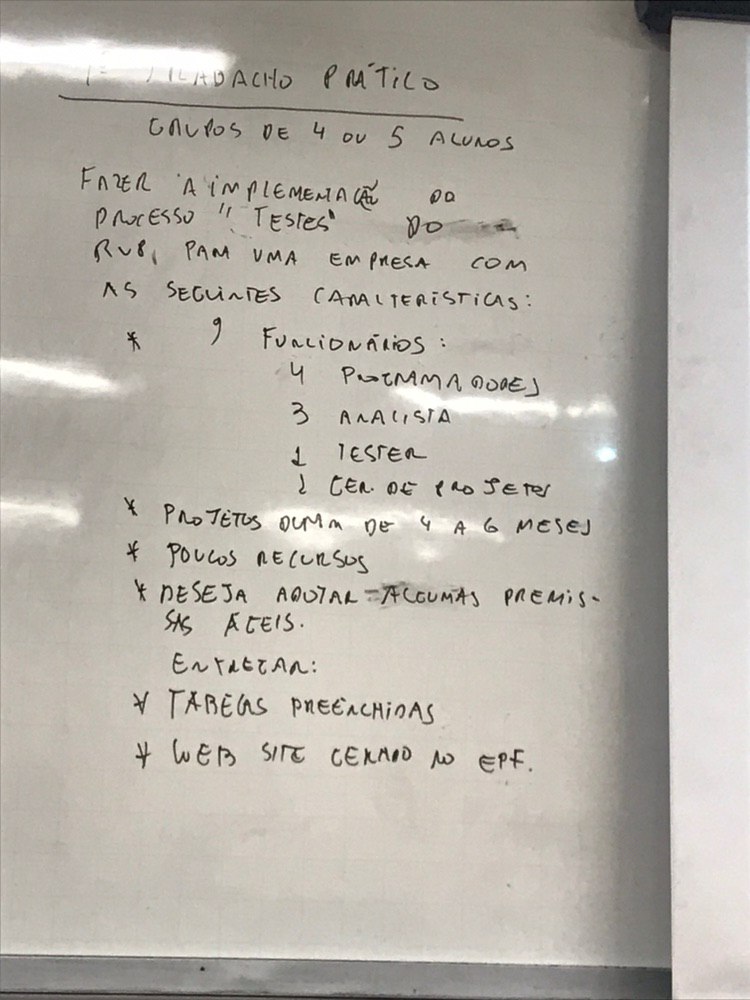 1º TRABALHO PRÁTICO
GRUPOS DE 4 OU 5 ALUNOS
FAZER A IMPLEMENTAÇÃO DO
PROCESSO "TESTES" DO
RUP, PARA UMA EMPRESA COM
AS SEGUINTES CARACTERÍSTICAS:
* 9 FUNCIONÁRIOS:
4 PROGRAMADORES
3 ANALISTA
1 TESTER
1 GER. DE PROJETOS
* PROJETOS DURAM DE 4 A 6 MESES
* POUCOS RECURSOS
* DESEJA ADOTAR ALGUMAS PREMIS-
SAS ÁGEIS.
ENTREGAR:
* TABELAS PREENCHIDAS
* WEB SITE GERADO NO EPF.